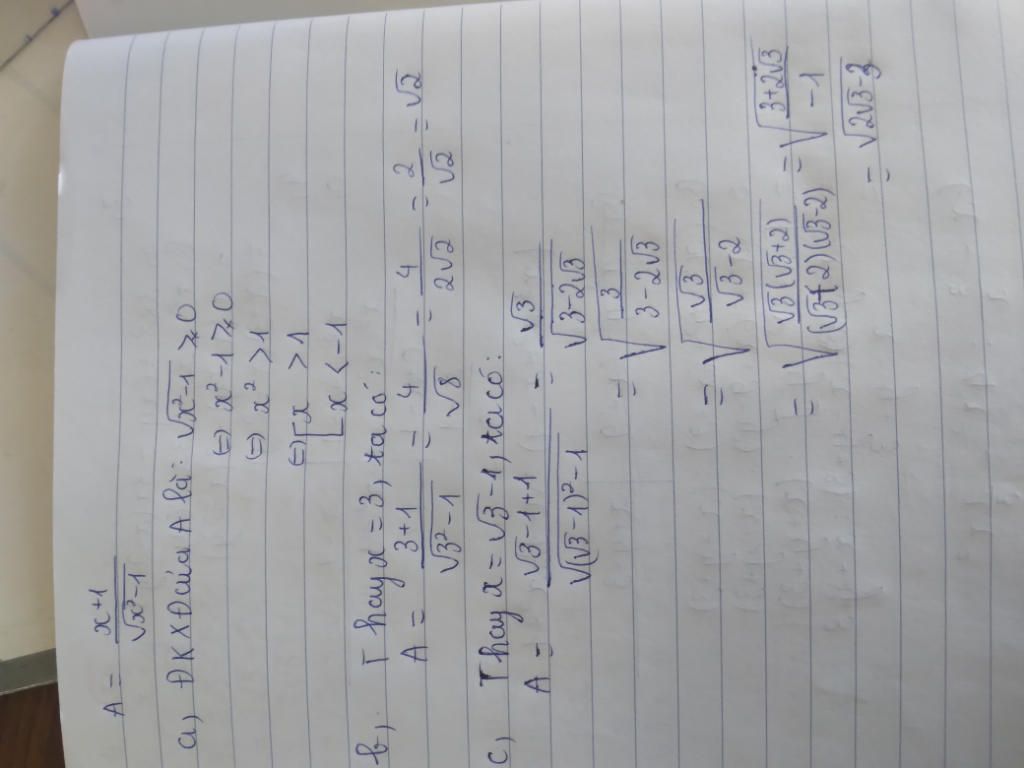 A = x+1 / √x²-1
a, ĐKXĐ của A là: √x²-1 ⩾ 0
⇔ x²-1 ⩾ 0
⇔ x² > 1
⇔ [ x > 1
x < -1
b, Thay x = 3, ta có:
A = 3+1 / √3²-1 = 4 / √8 = 4 / 2√2 = 2 / √2 = √2
c, Thay x = √3-1, ta có:
A = √3-1+1 / √(√3-1)²-1 = √3 / √3-2√3
= √(3 / 3-2√3)
= √(√3 / √3-2)
= √(√3(√3+2) / (√3+2)(√3-2)) = √(3+2√3 / -1)
= √2√3-3